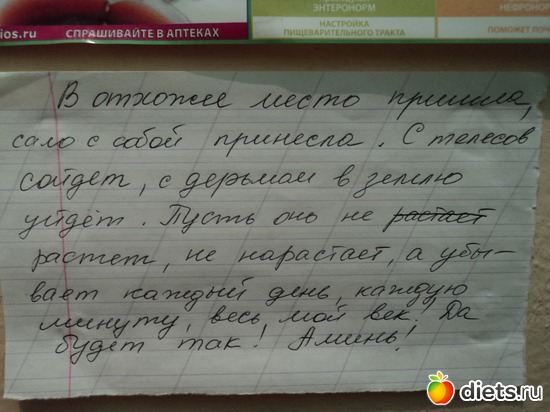 ios.ru
СПРАШИВАЙТЕ В АПТЕКАХ
ЭНТЕРОНОРМ
НАСТРОЙКА
ПИЩЕВАРИТЕЛЬНОГО ТРАКТА
НЕФРОНОР
ПОМОЖЕТ ПОЧ
В отхожее место пришла,
сало с собой принесла. С телесов
сойдёт, с дерьмом в землю
уйдёт. Пусть оно не растает
растет, не нарастает, а убы-
вает каждый день, каждую
минуту, весь мой век! Да
будет так! Аминь!
diets.ru